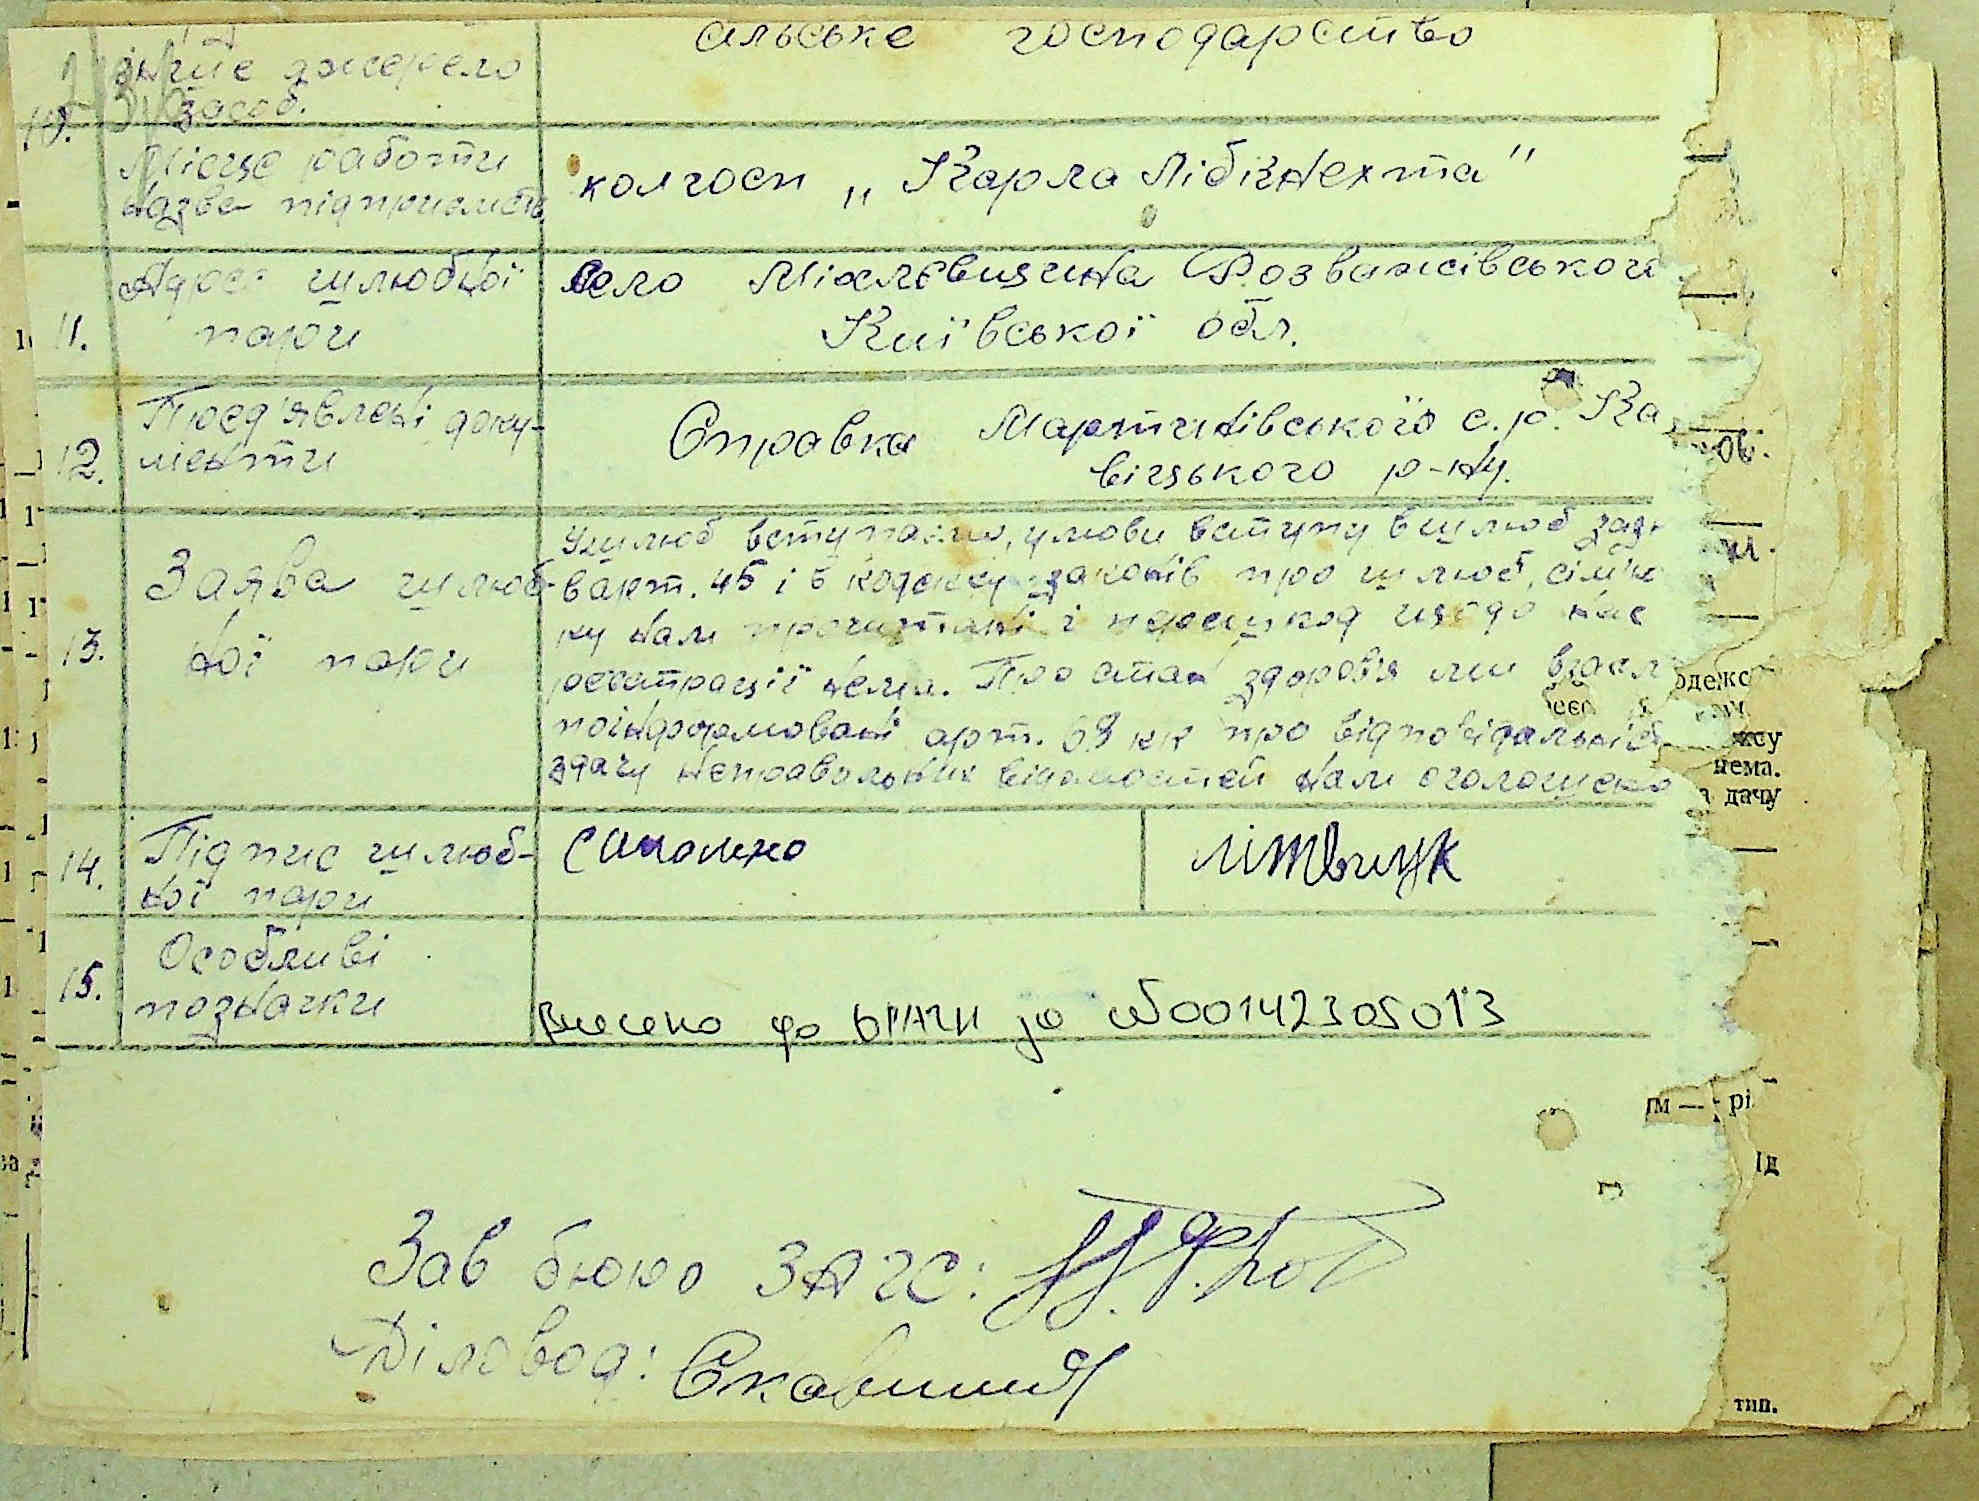 сільське господарство
інше джерело
засоб.
10.
Місце работи
Назва підприємств
колгосп „Карла Лібкнехта"
11.
Адрес шлюбної
пари
село Міхлєвщина Розважівського
Київської обл.
12.
Пред'явлені доку-
менти
Справка Мартинівського с.р. Ка
вівського р-ну.
13.
Заява шлюб-
ної пари
У шлюб вступаємо, умови вступу в шлюб
в арт. 4 5 і 6 кодексу законів про шлюб, сім'ю
ку нам прочитані і перешкод щодо нас
реєстрації нема. Про стан здоров'я ми взаєм
поінформовані арт. 68 кк про відповідальніс
здачу неправильних відомостей нам оголошено
14.
Підпис шлюб-
ної пари
літвинук
15.
Особливі
позначки
Внесено до ДРАЦС за №00142305013
Зав бюро ЗАГС:
Діловод:
одежс
ксу
нема.
а дачу
ім — рі
ід
тип.